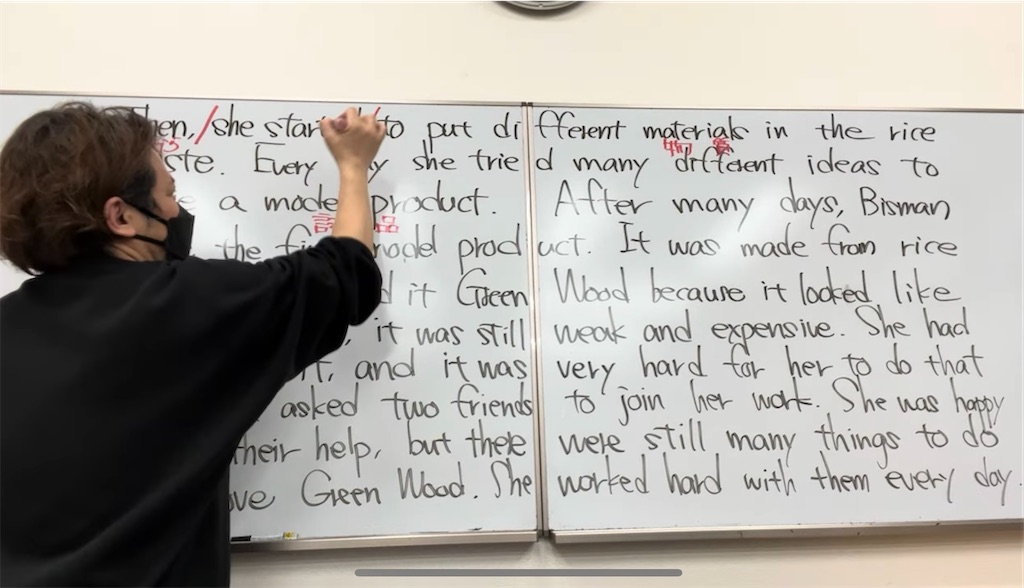 she to put different materials in the rice
Every she tried many different ideas to
a model product. After many days, Bisman
the model product. It was made from rice
it Green Wood because it looked like
it was still weak and expensive. She had
and it was very hard for her to do that
asked two friends to join her work. She was happy
their help, but there were still many things to do
Green Wood. She worked hard with them every day.